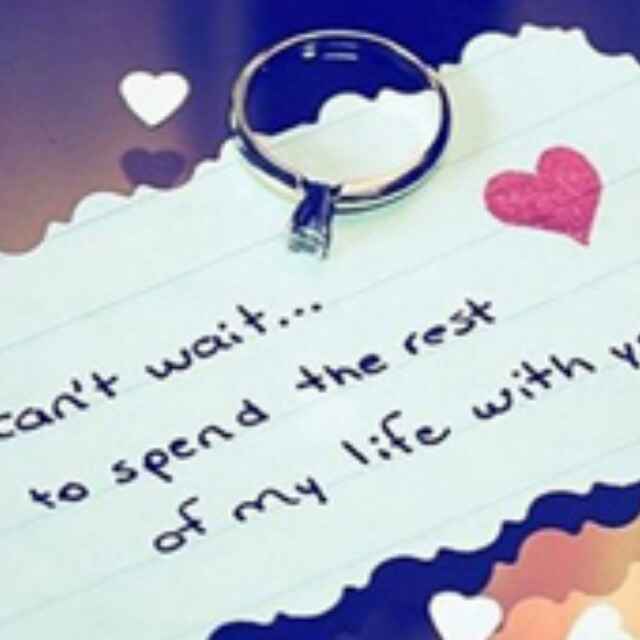 can't wait...
to spend the rest
of my life with